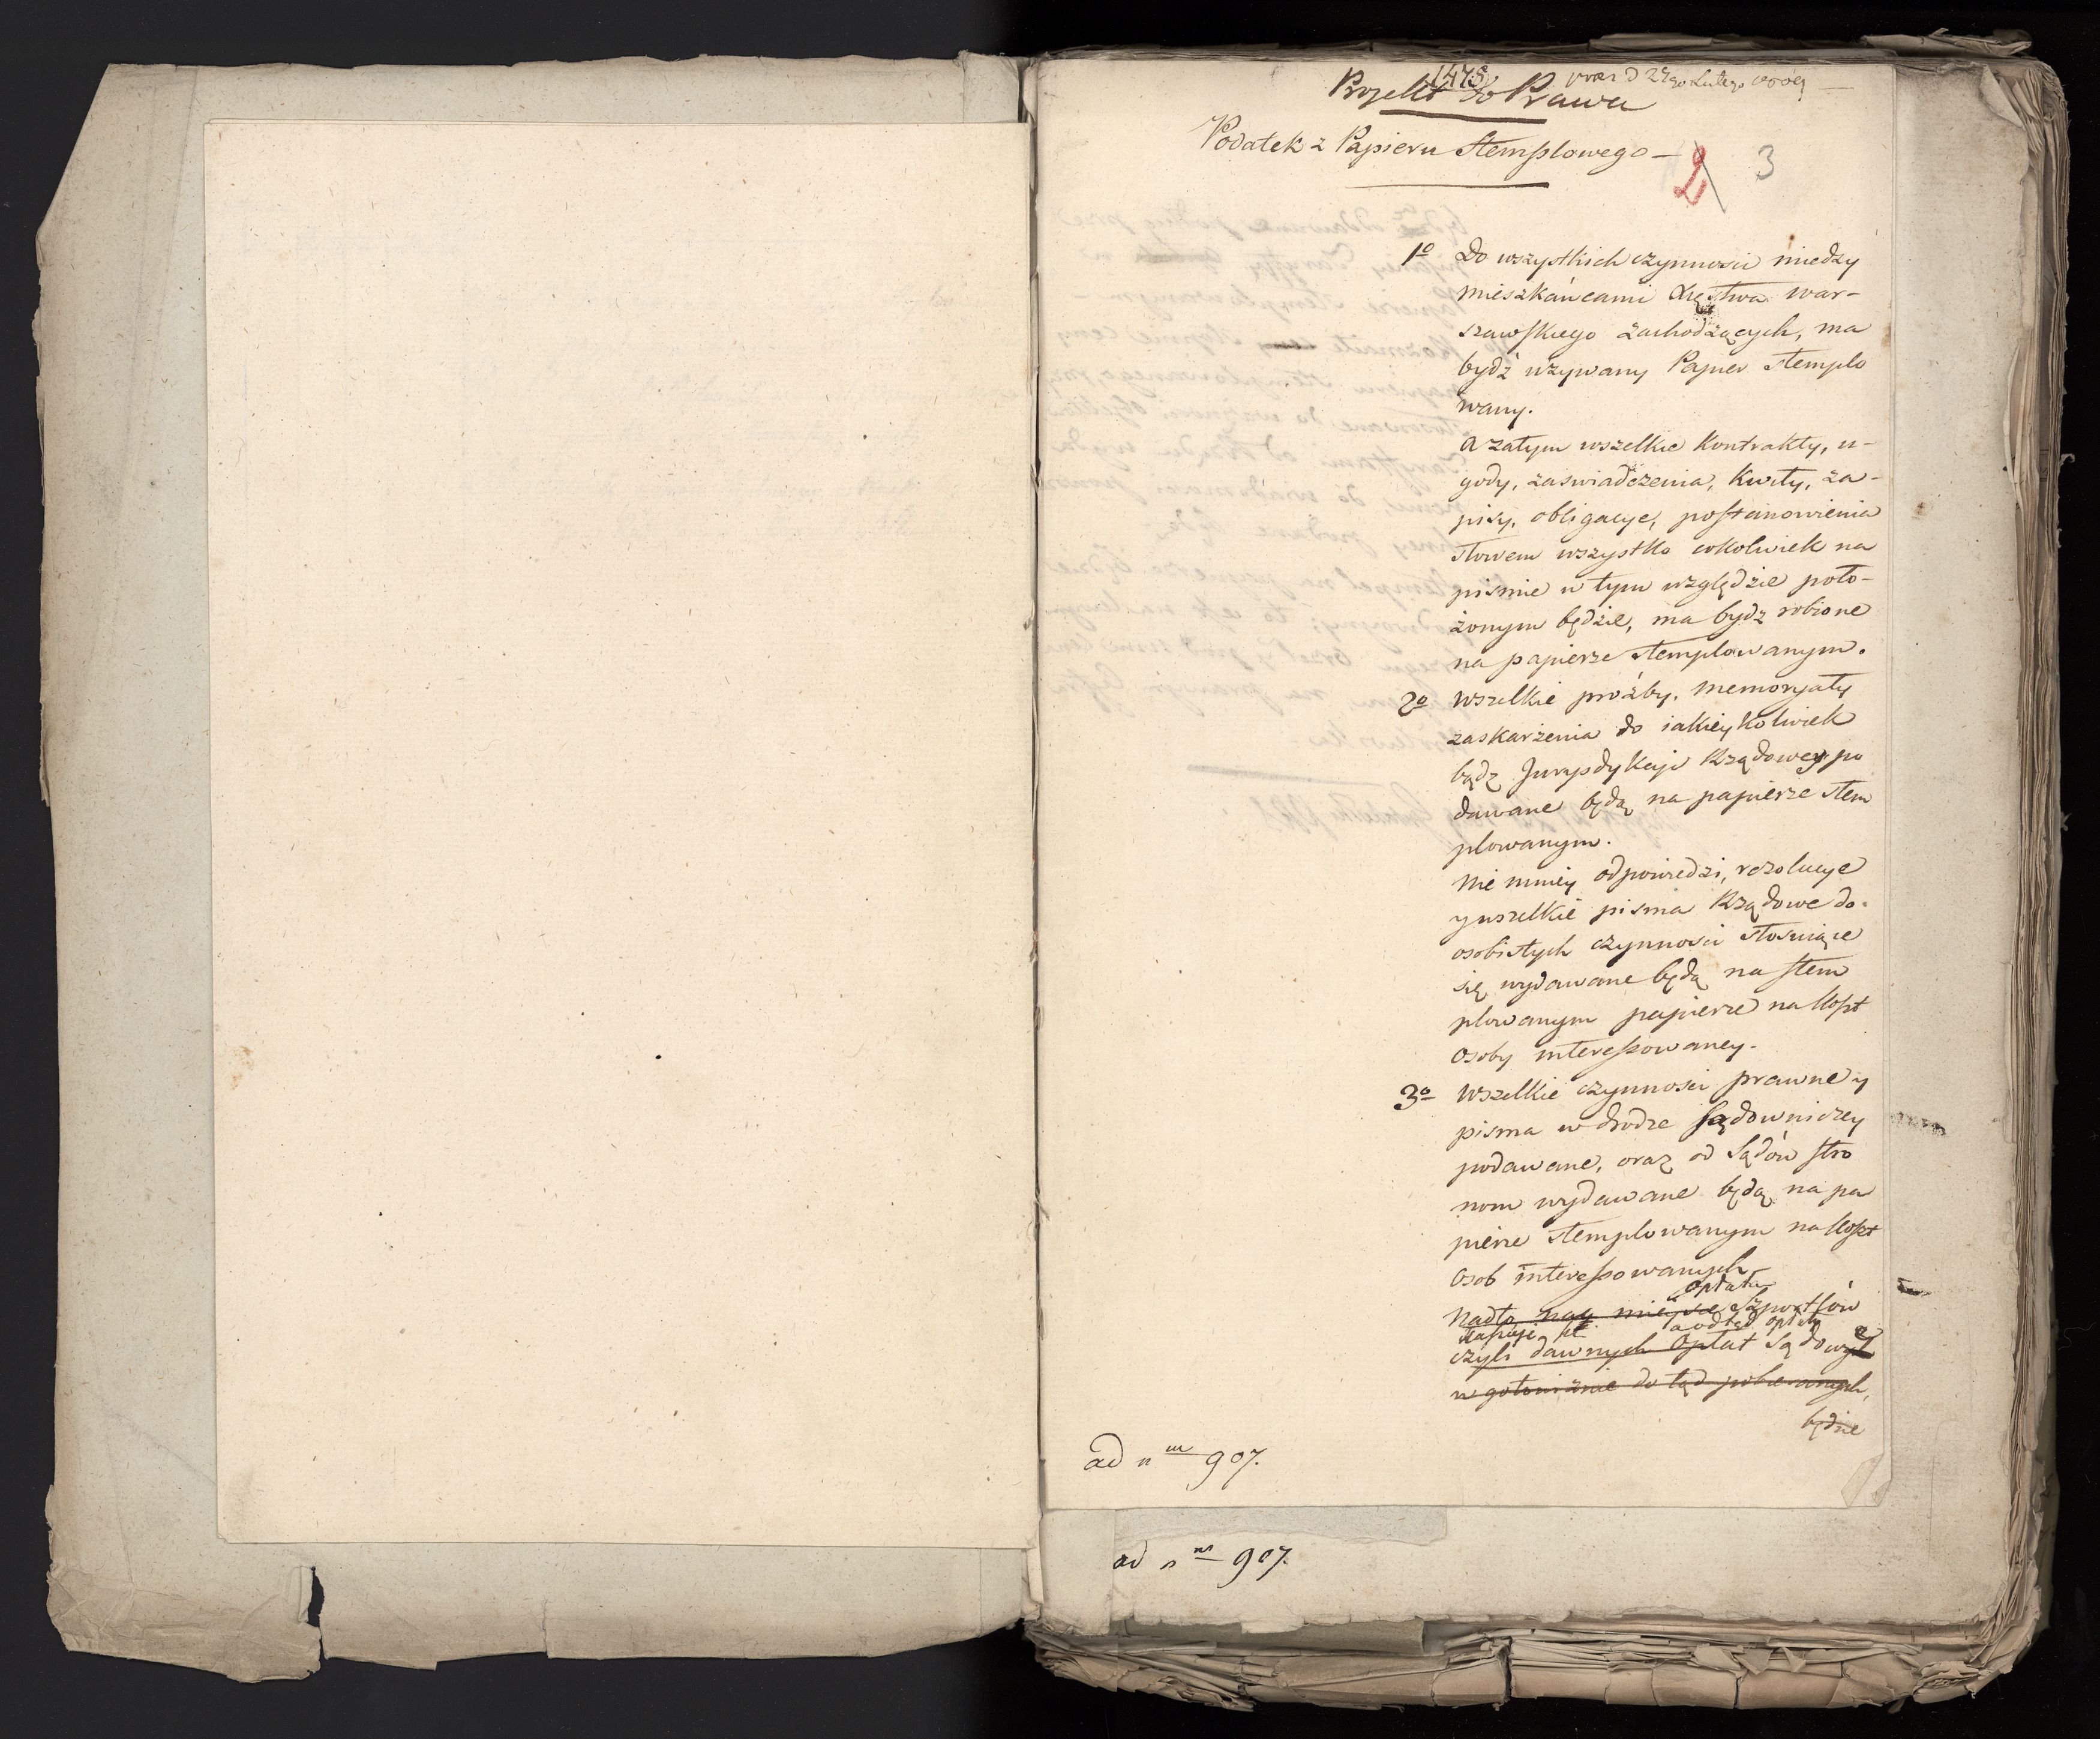 1478
Projekt do Prawa
praes d 27go Lutego
Podatek z Papieru Stemplowego —
2 3
1o Do wszystkich czynności miedzy
mieszkańcami Xięstwa War-
szawskiego zachodzących, ma
bydź używany Papier stemplo
wany.
a zatym wszelkie Kontrakty, u-
gody, zaswiadczenia, Kwity, za-
pisy, obligacye, postanowienia
słowem wszystko cokolwiek na
pismie w tym względzie poło-
żonym będzie, ma bydz robione
na papierze stemplowanym.
2o Wszelkie prożby, memoryały
zaskarżenia do iakieykolwiek
bądz Jurysdykcyi Rządowey po
dawane będą na papierze stem
plowanym.
Nie mniey odpowiedzi, rezolucye
y wszelkie pisma Rządowe do
osobistych czynności stosuiące
się wydawane będą na stem
plowanym papierze na Koszt
Osoby interessowaney.
3o Wszelkie czynności prawne y
pisma w drodze sądowniczey
podawane, oraz od Sądów stro
nom wydawane będą na pa
pierze stemplowanym na Koszt
Osob interessowanych
opłata
Nadto na mieysce Szportlów
a odtąd opłaty
czyli dawnych Opłat Sądowych
w gotowiznie do tąd pobieranych,
będzie
ad nm 907.
ad nm 907.